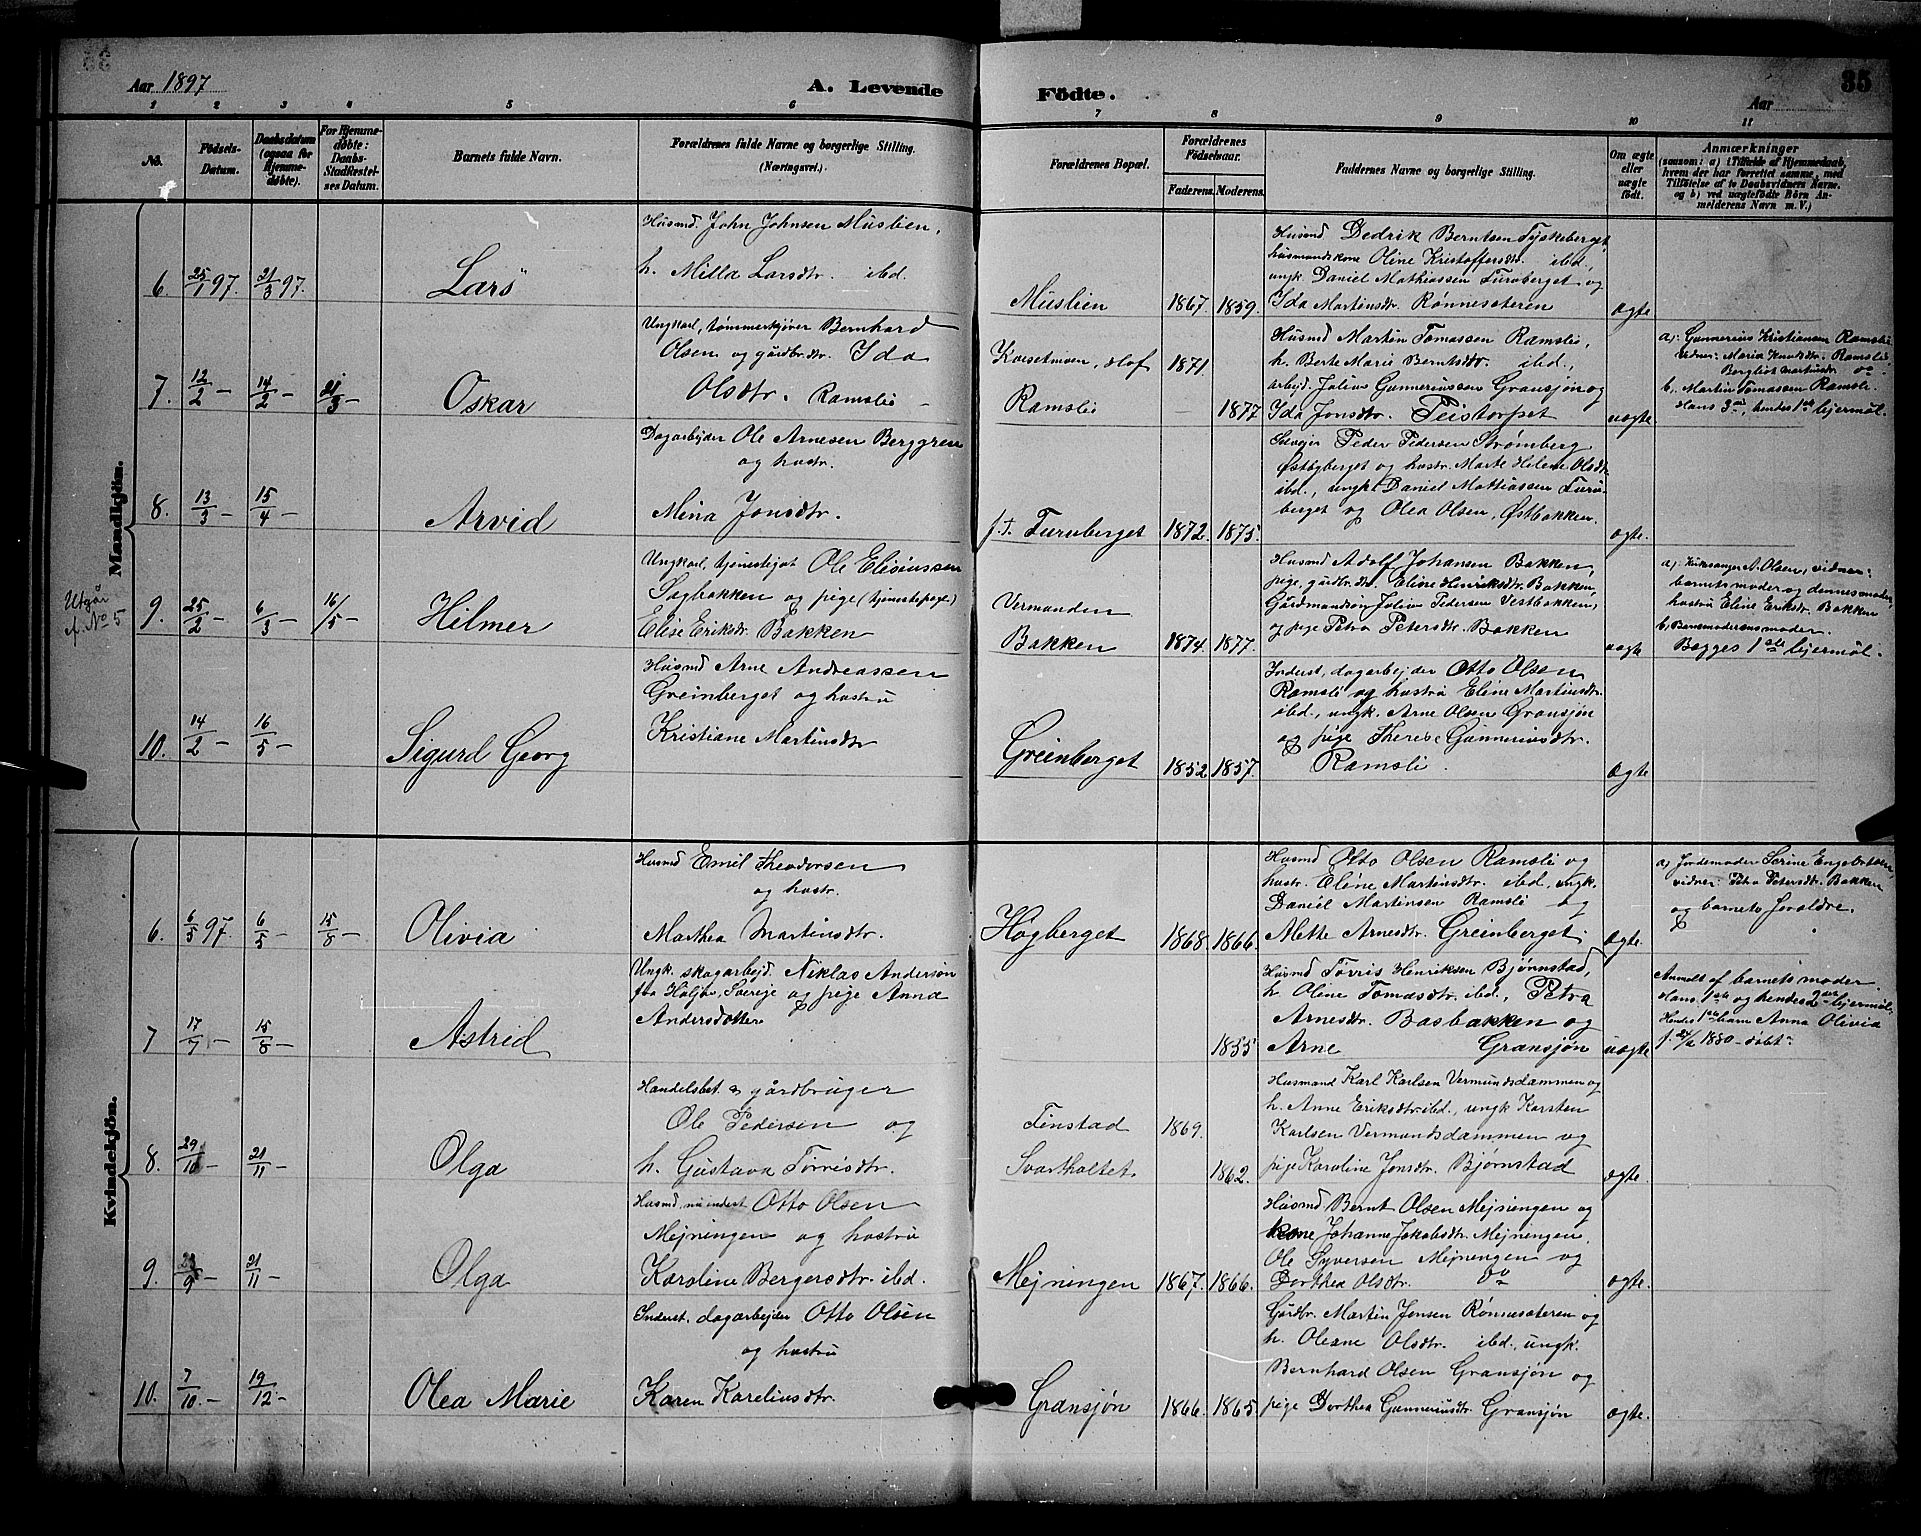 Aar 1897
A. Levende
Födte.
Aar
35
1 2 3 4 5 6 7 8 9 10 11
No.
Födsels-Datum.
Daabsdatum (ogsaa for Hjemmedöbte).
For Hjemmedöbte: Daabs-Stadfæstelses Datum.
Barnets fulde Navn.
Forældrenes fulde Navne og borgerlige Stilling. (Næringsvei.)
Forældrenes Bopæl.
Forældrenes Födselsaar.
Faderens. Moderens.
Faddernes Navne og borgerlige Stilling.
Om ægte eller uægte födt.
Anmærkninger
(saasom: a) i Tilfælde af Hjemmedaab, hvem der har forrettet samme, med Tilföielse af to Daabsvidners Navne, og b) ved uægtefödte Börn Anmelderens Navn m. V.)
Mandkjön.
6 25/1 97. 21/3 97.
Lars
Husmd. John Johnsen Muslien,
h. Milla Larsdtr. ibd.
Muslien 1867. 1859.
Husmd Dedrik Berntsen Tyskeberget
husmandskone Oline Kristoffersdtr. ibd,
ungk. Daniel Mathiassen Furuberget og
Ida Martinsdtr. Rønnesæteren
ægte
7. 12/2 – 14/2 – 21/3 –
Oskar
Ungkarl, tømmerkjører Bernhard
Olsen og gårdbr.dtr. Ida
Olsdtr. Ramsli –
Korsetmoen, Elof 1871.
Ramsli 1877
Husmd Martin Tomassen Ramsli,
h. Berte Marie Berntsdtr. ibd.,
arbejd. Julius Gunneriussen Gransjøn og
Ida Jonsdtr. Teistorpet
uægte
a): Gunnerius Kristiansen Ramsli
vidner: Maria Knudsdtr. Ramsli
Bergliot Martinsdtr do.
b. Martin Tomassen Ramsli.
Hans 3die, hendes 1ste lejermål.
8. 13/3 – 15/4 –
Arvid
Dagarbejder Ole Arnesen Berggren
og hustr.
Mina Jonsdtr.
f.t. Furuberget 1872. 1875.
Selvejer Peder Pedersen Strømberg
Østbyberget og hustr. Marte Helene Olsdtr
ibd., ungk. Daniel Mathiassen Furu-
berget og Olea Olsen, Østbakken.
ægte.
Utgår
cf. No 5
9. 25/2 – 6/3 – 16/5 –
Hilmer
Ungkarl, tjenestegut Ole Eliseussen
Sagbakken og pige (tjenestepige)
Elise Eriksdtr. Bakken
Vermunden
Bakken 1874. 1877.
Husmd Adolf Johansen Bakken,
pige, gårdbr.dtr. Eline Henriksdtr. Bakken,
Gårdmandssøn Julius Pedersen Vestbakken,
og pige Petra Petersdtr. Bakken
uægte
a) Kirkesanger A. Olsen, vidner:
barnets moder og dennes moder,
hustru Eline Eriksdtr. Bakken
b) Barnemoderens moder.
Begges 1ste lejermål.
10. 14/2 – 16/5 –
Sigurd Georg
Husmd Arne Andreassen
Greinberget og hustru
Kristiane Martinsdtr
Greinberget 1852 1857.
Inderst, dagarbejder Otto Olsen
Ramsli og hustru Eline Martinsdtr.
ibd., ungk. Arne Olsen Gransjøn
og pige Therese Gunneriusdtr.
Ramsli.
ægte
Kvindekjön.
6. 6/5 97. 6/5 – 15/8 –
Olivia
Husmd Emil Theodorsen
og hustr.
Marthea Martinsdtr.
Høgberget 1868. 1866.
Husmd Otto Olsen Ramsli og
hustr. Eline Martinsdtr. ibd, ungk.
Daniel Martinsen Ramsli og
Mette Arnesdtr. Greinberget.
ægte.
a) Jordemoder Serine Engebretsen,
vidner: Petra Petersdtr. Bakken
og barnets forældre.
7 17/7 – 15/8 –
Astrid
Ungk. skogarbejd. Niklas Anderson
fra Höljer, Sverige og pige Anna
Andersdotter
1855
Husmd Tørris Henriksen Bjørnstad,
h. Oline Tomasdtr. ibd., Petra
Arnesdtr. Basbakken og
Arne Gransjøn
uægte
Anmeldt af barnets moder.
Hans 1ste og hendes 2det lejermål,
Hendes 1ste barn Anna Olivia
f. 24/2 1880 – døbt
8. 29/10 – 21/11 –
Olga
Handelsbet. & gårdbruger
Ole Pedersen og
h. Gustava Tørrisdtr.
Finstad 1869.
Svartholtet 1862.
Husmand Karl Karlsen Vermundsdammen og
h. Anne Eriksdtr. ibd., ungk Karsten
Karlsen Vermundsdammen og
pige Karoline Jonsdtr. Bjørnstad
ægte.
9. 23/9 – 21/11 –
Olga
Husmd, nu inderst Otto Olsen
Mejningen og hustru
Karoline Bergersdtr. ibd.
Mejningen 1867. 1866.
Husmd Bernt Olsen Mejningen og
kone Johanne Jakobsdtr. Mejningen.
Ole Syversen Mejningen og
Dorthea Olsdtr. do
ægte.
10. 7/10. – 19/12 –
Olea Marie
Inderst. dagarbejder Otto Olsen
og hustru
Karen Kareliusdtr.
Gransjøn 1866. 1865.
Gårdbr. Martin Jensen Rønnesæteren og
h. Oleane Olsdtr. ibd., ungk.
Bernhard Olsen Gransjøn og
pige Dorthea Gunneriusdtr. Gransjøn
ægte.